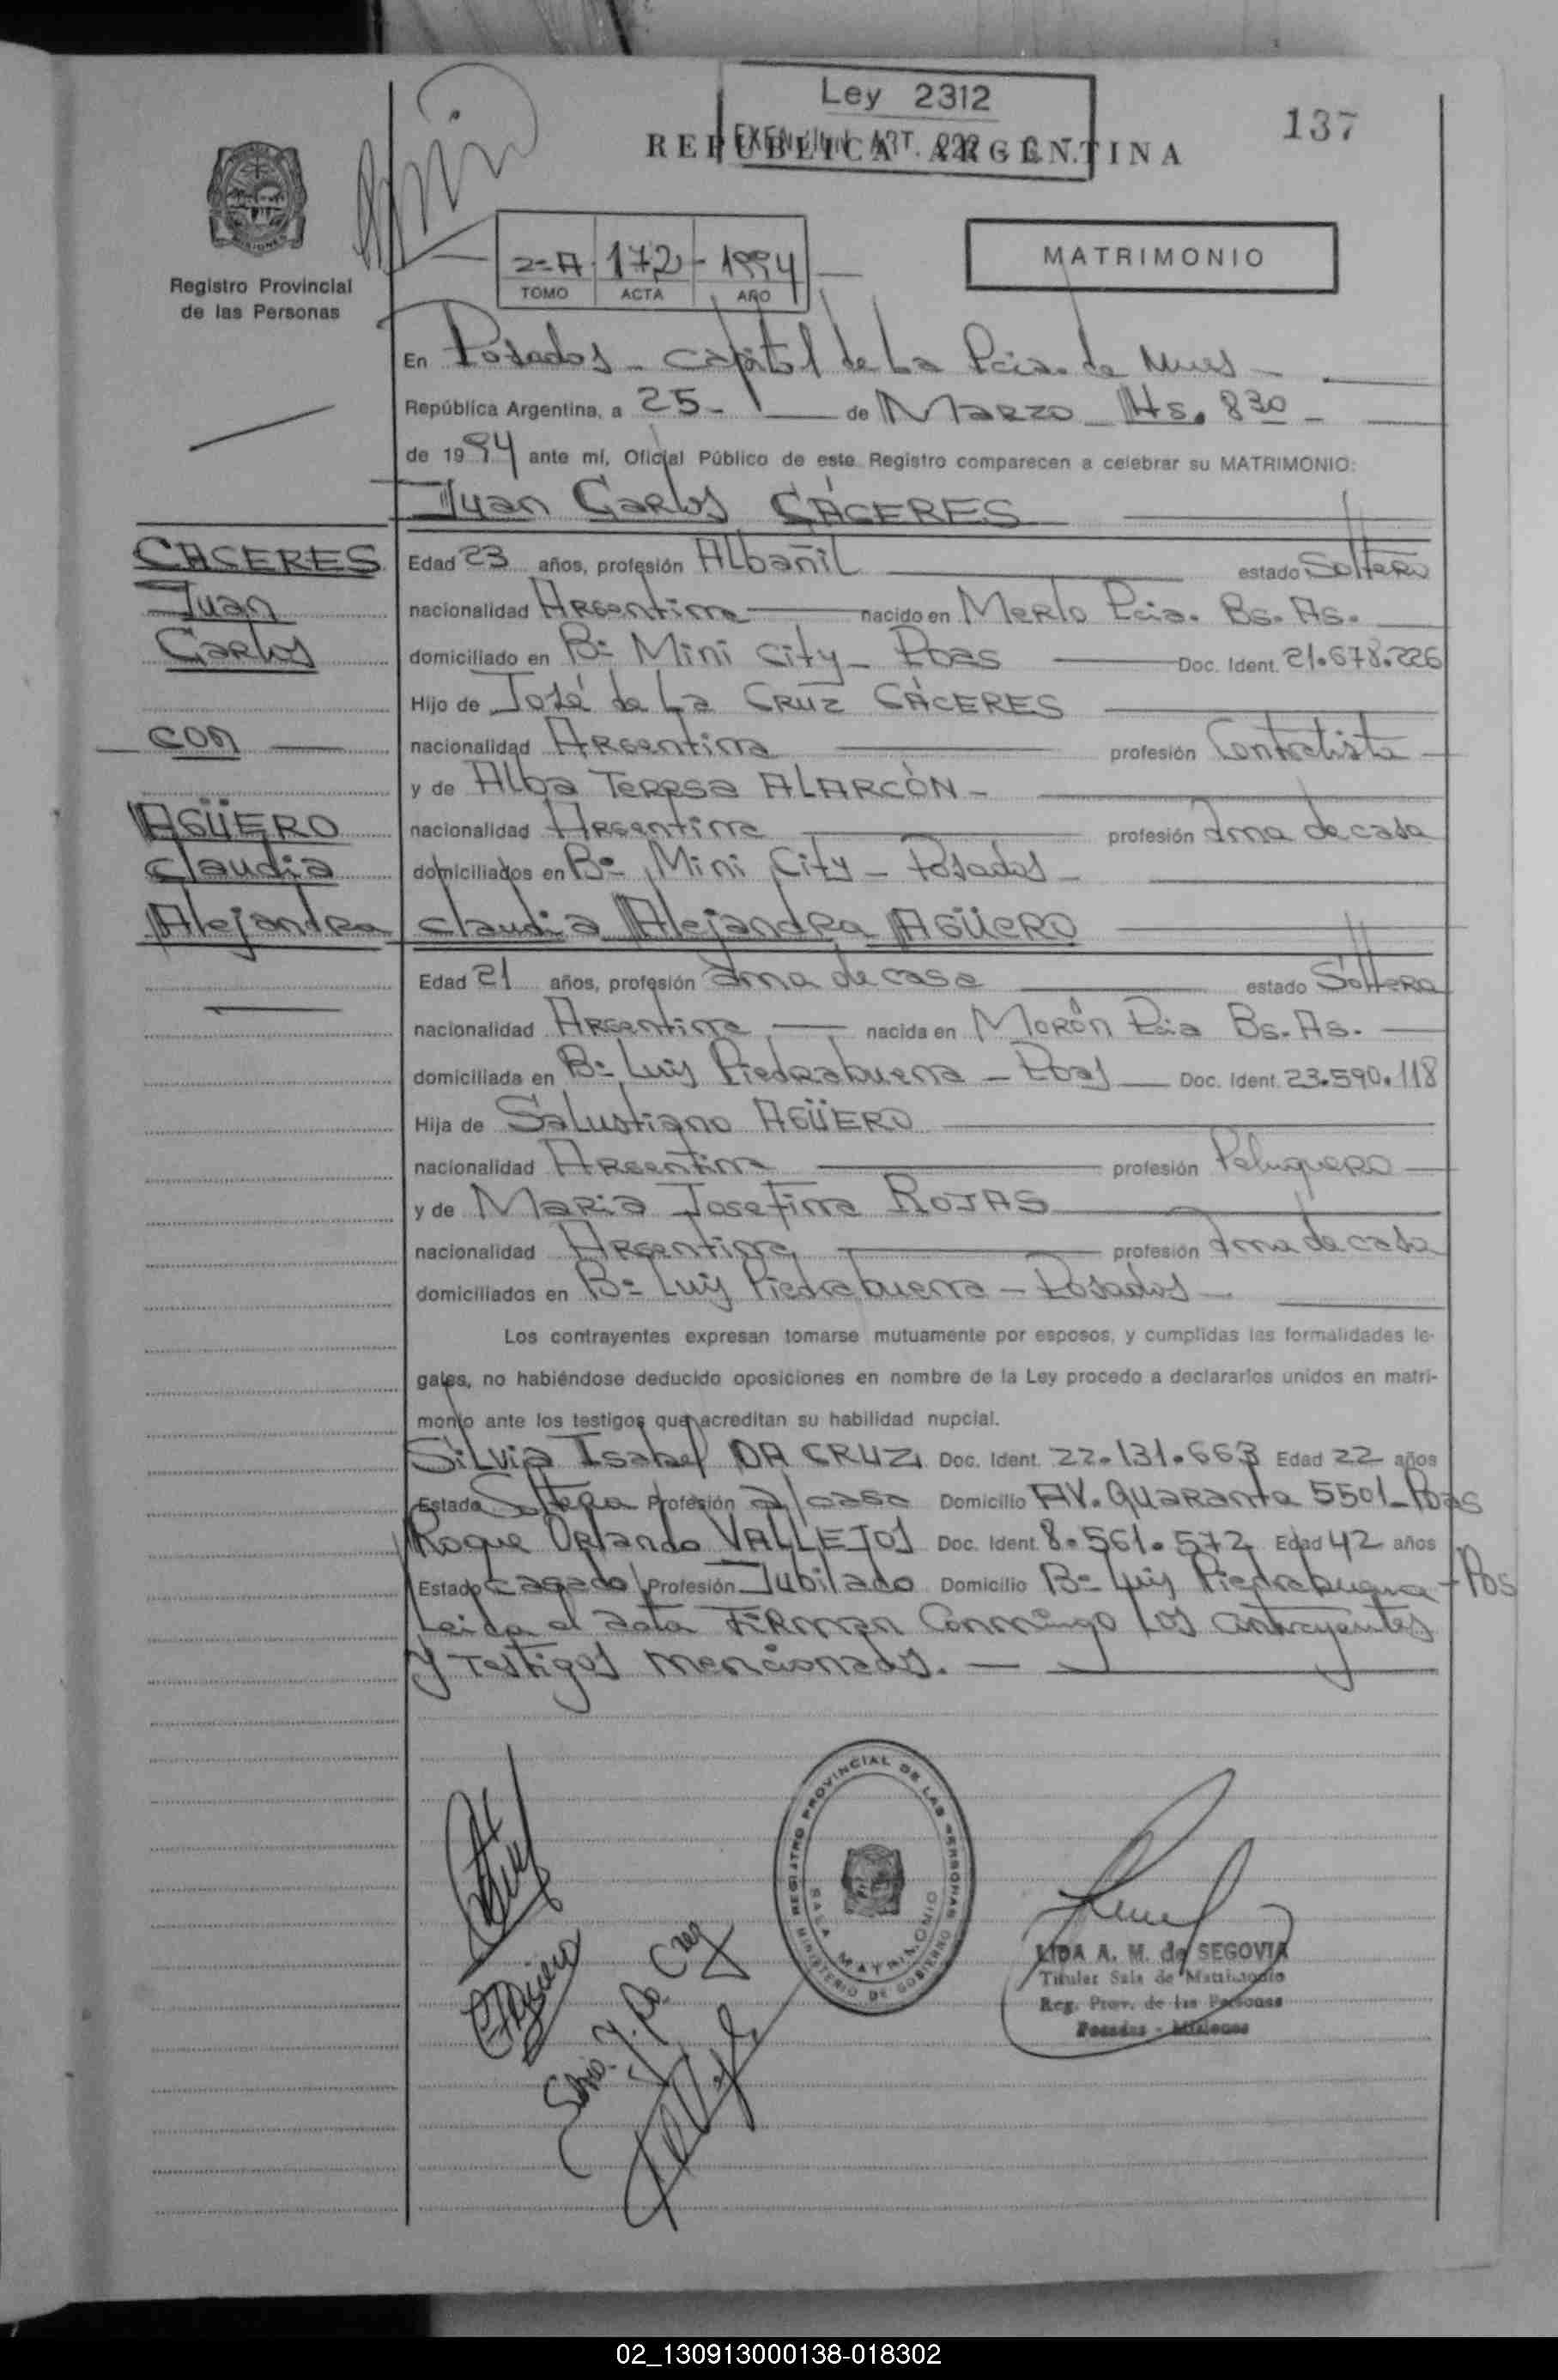 Ley 2312
137
REPUBLICA ARGENTINA
MATRIMONIO
2=A - 172 - 1994
TOMO ACTA AÑO
MISIONES
Registro Provincial
de las Personas
En Posadas - Capital de La Pcia. de Mnes -
República Argentina, a 25 - de MARZO Hs. 830 -
de 1994 ante mí, Oficial Público de este Registro comparecen a celebrar su MATRIMONIO:
Juan Carlos CÁCERES
CACERES
Juan
Carlos
con
AGÜERO
Claudia
Alejandra
Edad 23 años, profesión Albañil estado Soltero
nacionalidad Argentina nacido en Merlo Pcia. Bs. As.
domiciliado en Bº Mini City - Pdas Doc. Ident. 21.678.226
Hijo de José de La CRUZ CÁCERES
nacionalidad Argentina profesión Contratista
y de Alba Teresa ALARCÓN -
nacionalidad Argentina profesión Ama de casa
domiciliados en Bº Mini City - Posadas -
Claudia Alejandra AGÜERO
Edad 21 años, profesión ama de casa estado Soltera
nacionalidad Argentina nacida en Morón Pcia Bs. As.
domiciliada en Bº Luis Piedrabuena - Pdas Doc. Ident. 23.590.118
Hija de Salustiano AGÜERO
nacionalidad Argentina profesión Peluquero
y de Maria Josefina ROJAS
nacionalidad Argentina profesión Ama de casa
domiciliados en Bº Luis Piedrabuena - Posadas -
Los contrayentes expresan tomarse mutuamente por esposos, y cumplidas las formalidades le-
gales, no habiéndose deducido oposiciones en nombre de la Ley procedo a declararlos unidos en matri-
monio ante los testigos que acreditan su habilidad nupcial.
Silvia Isabel DA CRUZ Doc. Ident. 22.131.663 Edad 22 años
Estado Soltera Profesión a/casa Domicilio AV. Quaranta 5501 - Pdas
Roque Orlando VALLEJOS Doc. Ident. 8.561.572 Edad 42 años
Estado Casado Profesión Jubilado Domicilio Bº Luis Piedrabuena - Pos
Leída el acta FIRMAN Conmigo Los Contrayentes
y Testigos mencionados. -
REGISTRO PROVINCIAL DE LAS PERSONAS
MINISTERIO DE GOBIERNO
SALA MATRIMONIO
CAgüero
LIDA A. M. de SEGOVIA
Titular Sala de Matrimonio
Reg. Prov. de las Personas
Posadas - Misiones
02_130913000138-018302